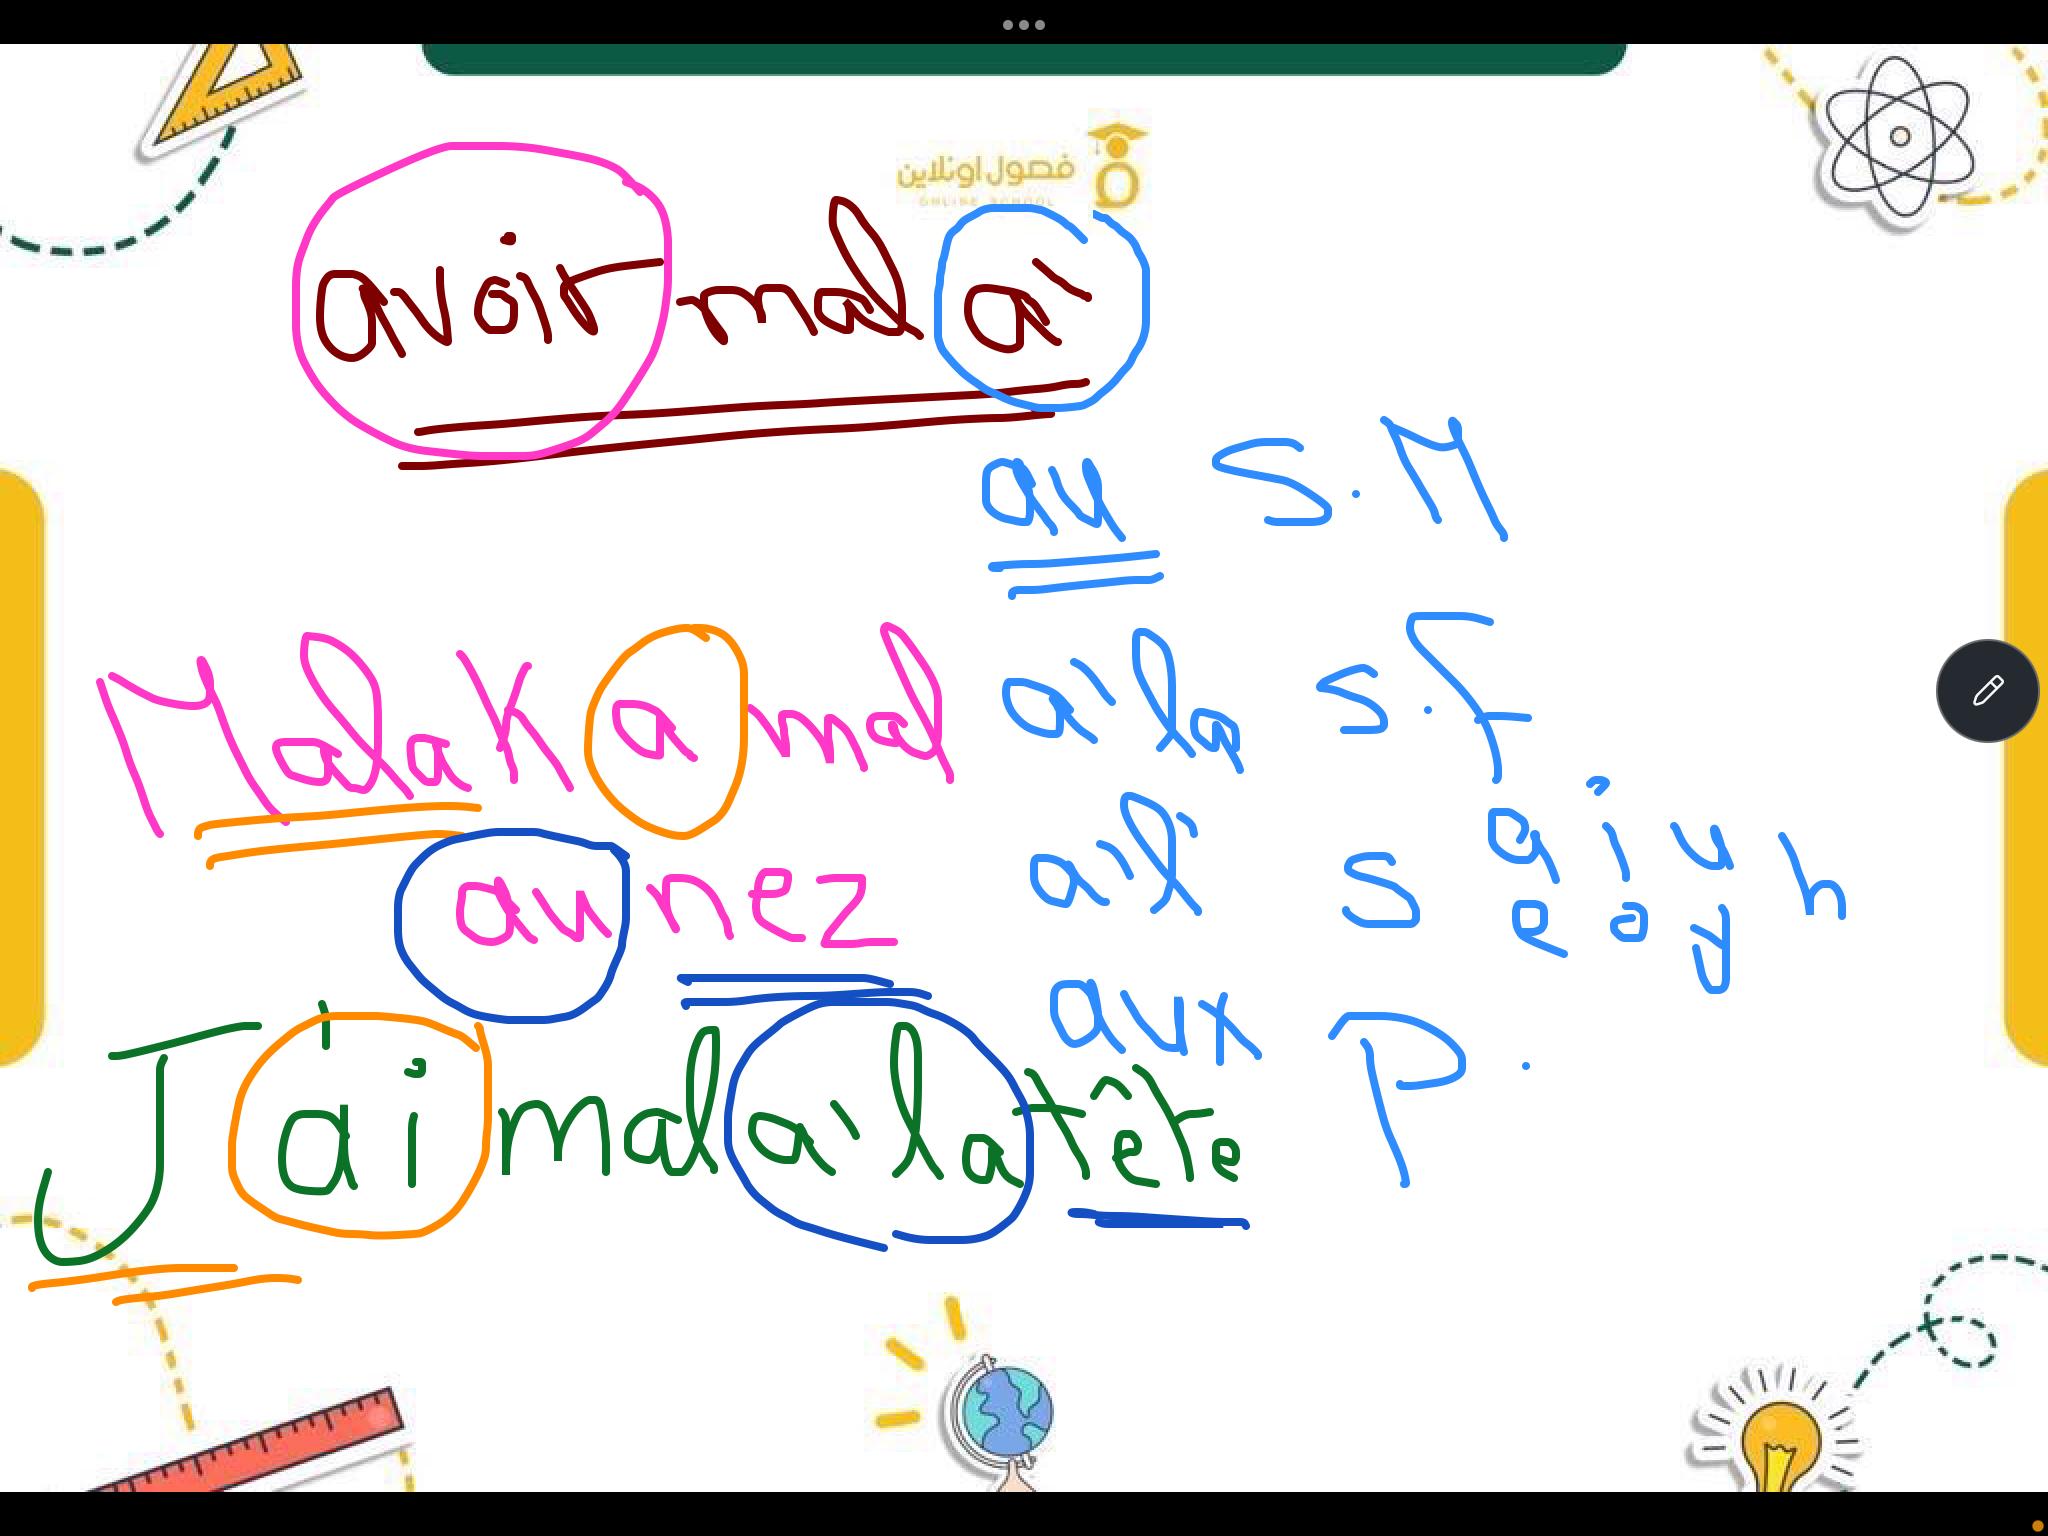 فصول اونلاين
ONLINE SCHOOL
avoir mal à
au S.M
Malak a mal à la S.F
au nez à l' S a i u h
e o y
aux P.
J'ai mal à la tête